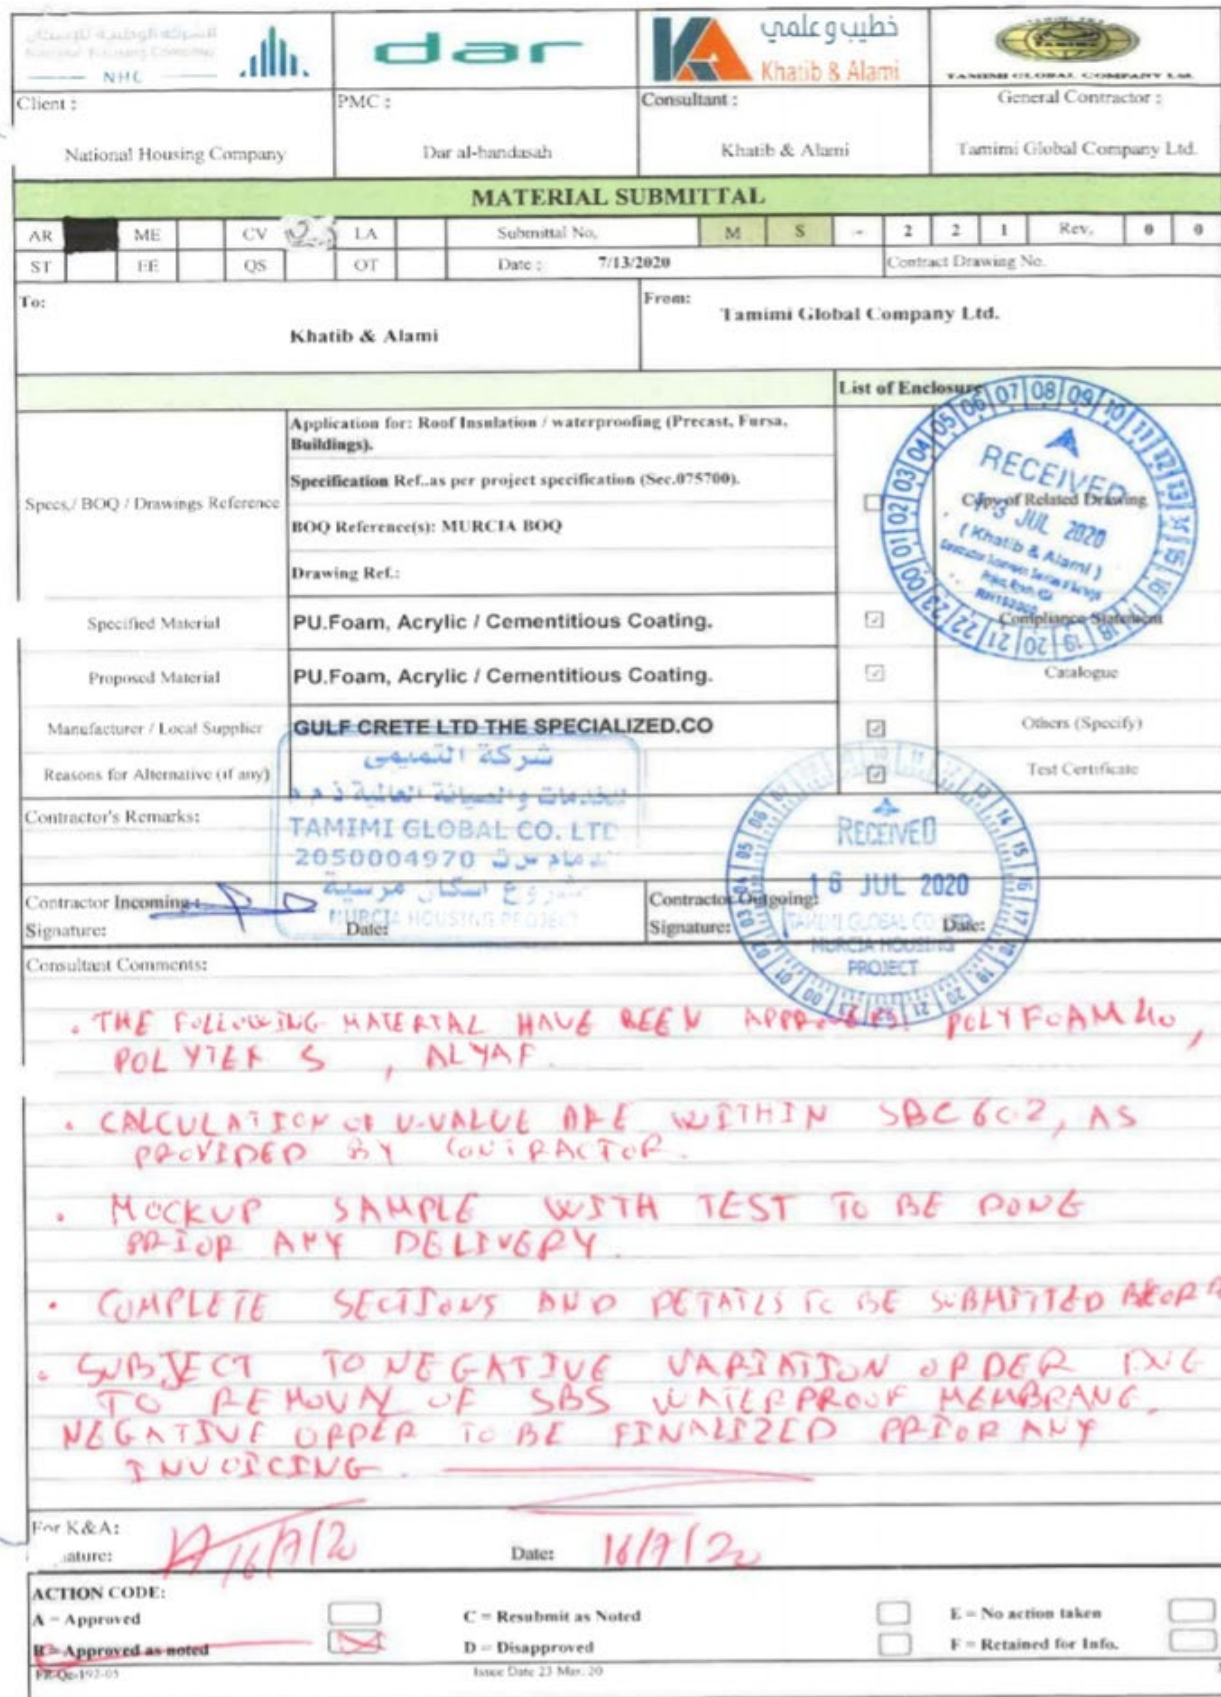 الشركة الوطنية للإسكان
National Housing Company
NHC
dar
خطيب وعلمي
Khatib & Alami
TAMIMI
TAMIMI GLOBAL COMPANY Ltd.
Client :
PMC :
Consultant :
General Contractor :
National Housing Company
Dar al-handasah
Khatib & Alami
Tamimi Global Company Ltd.
MATERIAL SUBMITTAL
AR ME CV LA Submittal No. M S - 2 2 1 Rev. 0 0
ST EE QS OT Date : 7/13/2020 Contract Drawing No.
To:
Khatib & Alami
From:
Tamimi Global Company Ltd.
List of Enclosure
Specs./ BOQ / Drawings Reference
Application for: Roof Insulation / waterproofing (Precast, Fursa,
Buildings).
Specification Ref..as per project specification (Sec.075700).
BOQ Reference(s): MURCIA BOQ
Drawing Ref.:
Copy of Related Drawing
RECEIVED
13 JUL 2020
( Khatib & Alami )
Specified Material PU.Foam, Acrylic / Cementitious Coating. Compliance Statement
Proposed Material PU.Foam, Acrylic / Cementitious Coating. Catalogue
Manufacturer / Local Supplier GULF CRETE LTD THE SPECIALIZED.CO Others (Specify)
Reasons for Alternative (if any) Test Certificate
شركة التميمى
للخدمات والصيانة العالمية ذ م م
TAMIMI GLOBAL CO. LTD
2050004970 الدمام س ت
مشروع اسكان مرسية
MURCIA HOUSING PROJECT
Contractor's Remarks:
RECEIVED
16 JUL 2020
TAMIMI GLOBAL CO
MURCIA HOUSING
PROJECT
Contractor Incoming :
Signature: Date:
Contractor Outgoing:
Signature: Date:
Consultant Comments:
. THE FOLLOWING MATERIAL HAVE BEEN APPROVED: POLYFOAM 40,
POLYTEK S , ALYAF.
. CALCULATION OF U-VALUE ARE WITHIN SBC 602, AS
PROVIDED BY CONTRACTOR.
. MOCKUP SAMPLE WITH TEST TO BE DONE
PRIOR ANY DELIVERY.
. COMPLETE SECTIONS AND DETAILS TO BE SUBMITTED
. SUBJECT TO NEGATIVE VARIATION ORDER DUE
TO REMOVAL OF SBS WATERPROOF MEMBRANE.
NEGATIVE ORDER TO BE FINALIZED PRIOR ANY
INVOICING.
For K&A:
16/7/20 Date: 16/7/20
ACTION CODE:
A = Approved C = Resubmit as Noted E = No action taken
B = Approved as noted D = Disapproved F = Retained for Info.
FR-Qc-192-05 Issue Date 23 Mar. 20